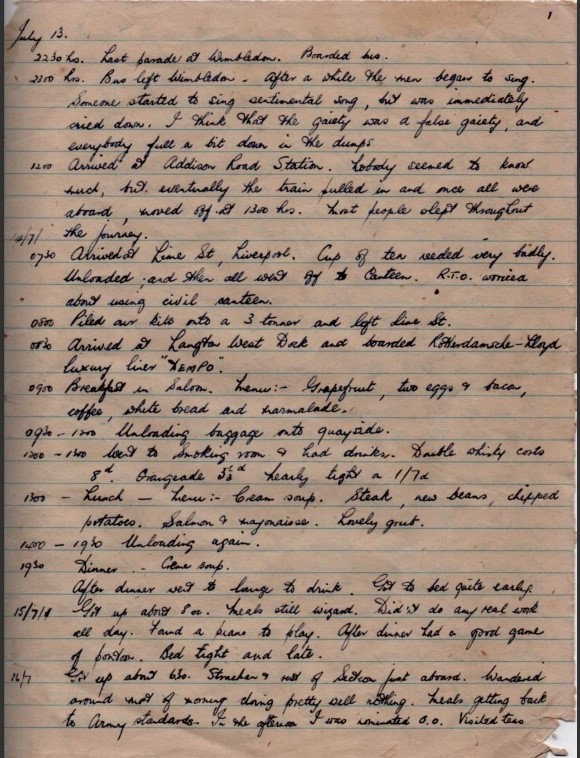 1
July 13.
2230 hs. Last parade at Wimbledon. Boarded bus.
2300 hrs. Bus left Wimbledon - After a while the men began to sing.
Someone started to sing sentimental song, but was immediately
cried down. I think that the gaiety was a false gaiety, and
everybody full a bit down in the dumps
1200 Arrived at Addison Road Station. Nobody seemed to know
much, but eventually the train pulled in and once all were
aboard, moved off at 1300 hrs. Most people slept throughout
14/7/ the journey.
0730 Arrived at Lime St, Liverpool. Cup of tea needed very badly.
Unloaded and then all went off to Canteen. R.T.O. worried
about using civil canteen.
0800 Piled our kits onto a 3 tonner and left Lime St.
0830 Arrived at Langton West Dock and boarded Rotterdamsche-Lloyd
luxury liner "DEMPO".
0900 Breakfast in Saloon. Menu:- Grapefruit, two eggs & bacon,
coffee, white bread and marmalade.
0930 - 1200 Unloading baggage onto quayside.
1200 - 1300 Went to Smoking room & had drinks. Double whisky costs
8d. Orangeade Nearly tight on 1/7d
1300 - Lunch - Menu:- Cream soup. Steak, new beans, chipped
potatoes. Salmon & mayonaisse. Lovely grub.
1400 - 1930 Unloading again.
1930 Dinner - soup.
After dinner went to lounge to drink. Got to bed quite early.
15/7/ Got up about 8 oc. Meals still wizard. Didn't do any real work
all day. Found a piano to play. After dinner had a good game
of pontoon. Bed tight and late.
16/7 Got up about 630. Strachan & rest of Section just aboard. Wandered
around most of morning doing pretty well nothing. Meals getting back
to Army standards. In the afternoon I was nominated O.O. Visited